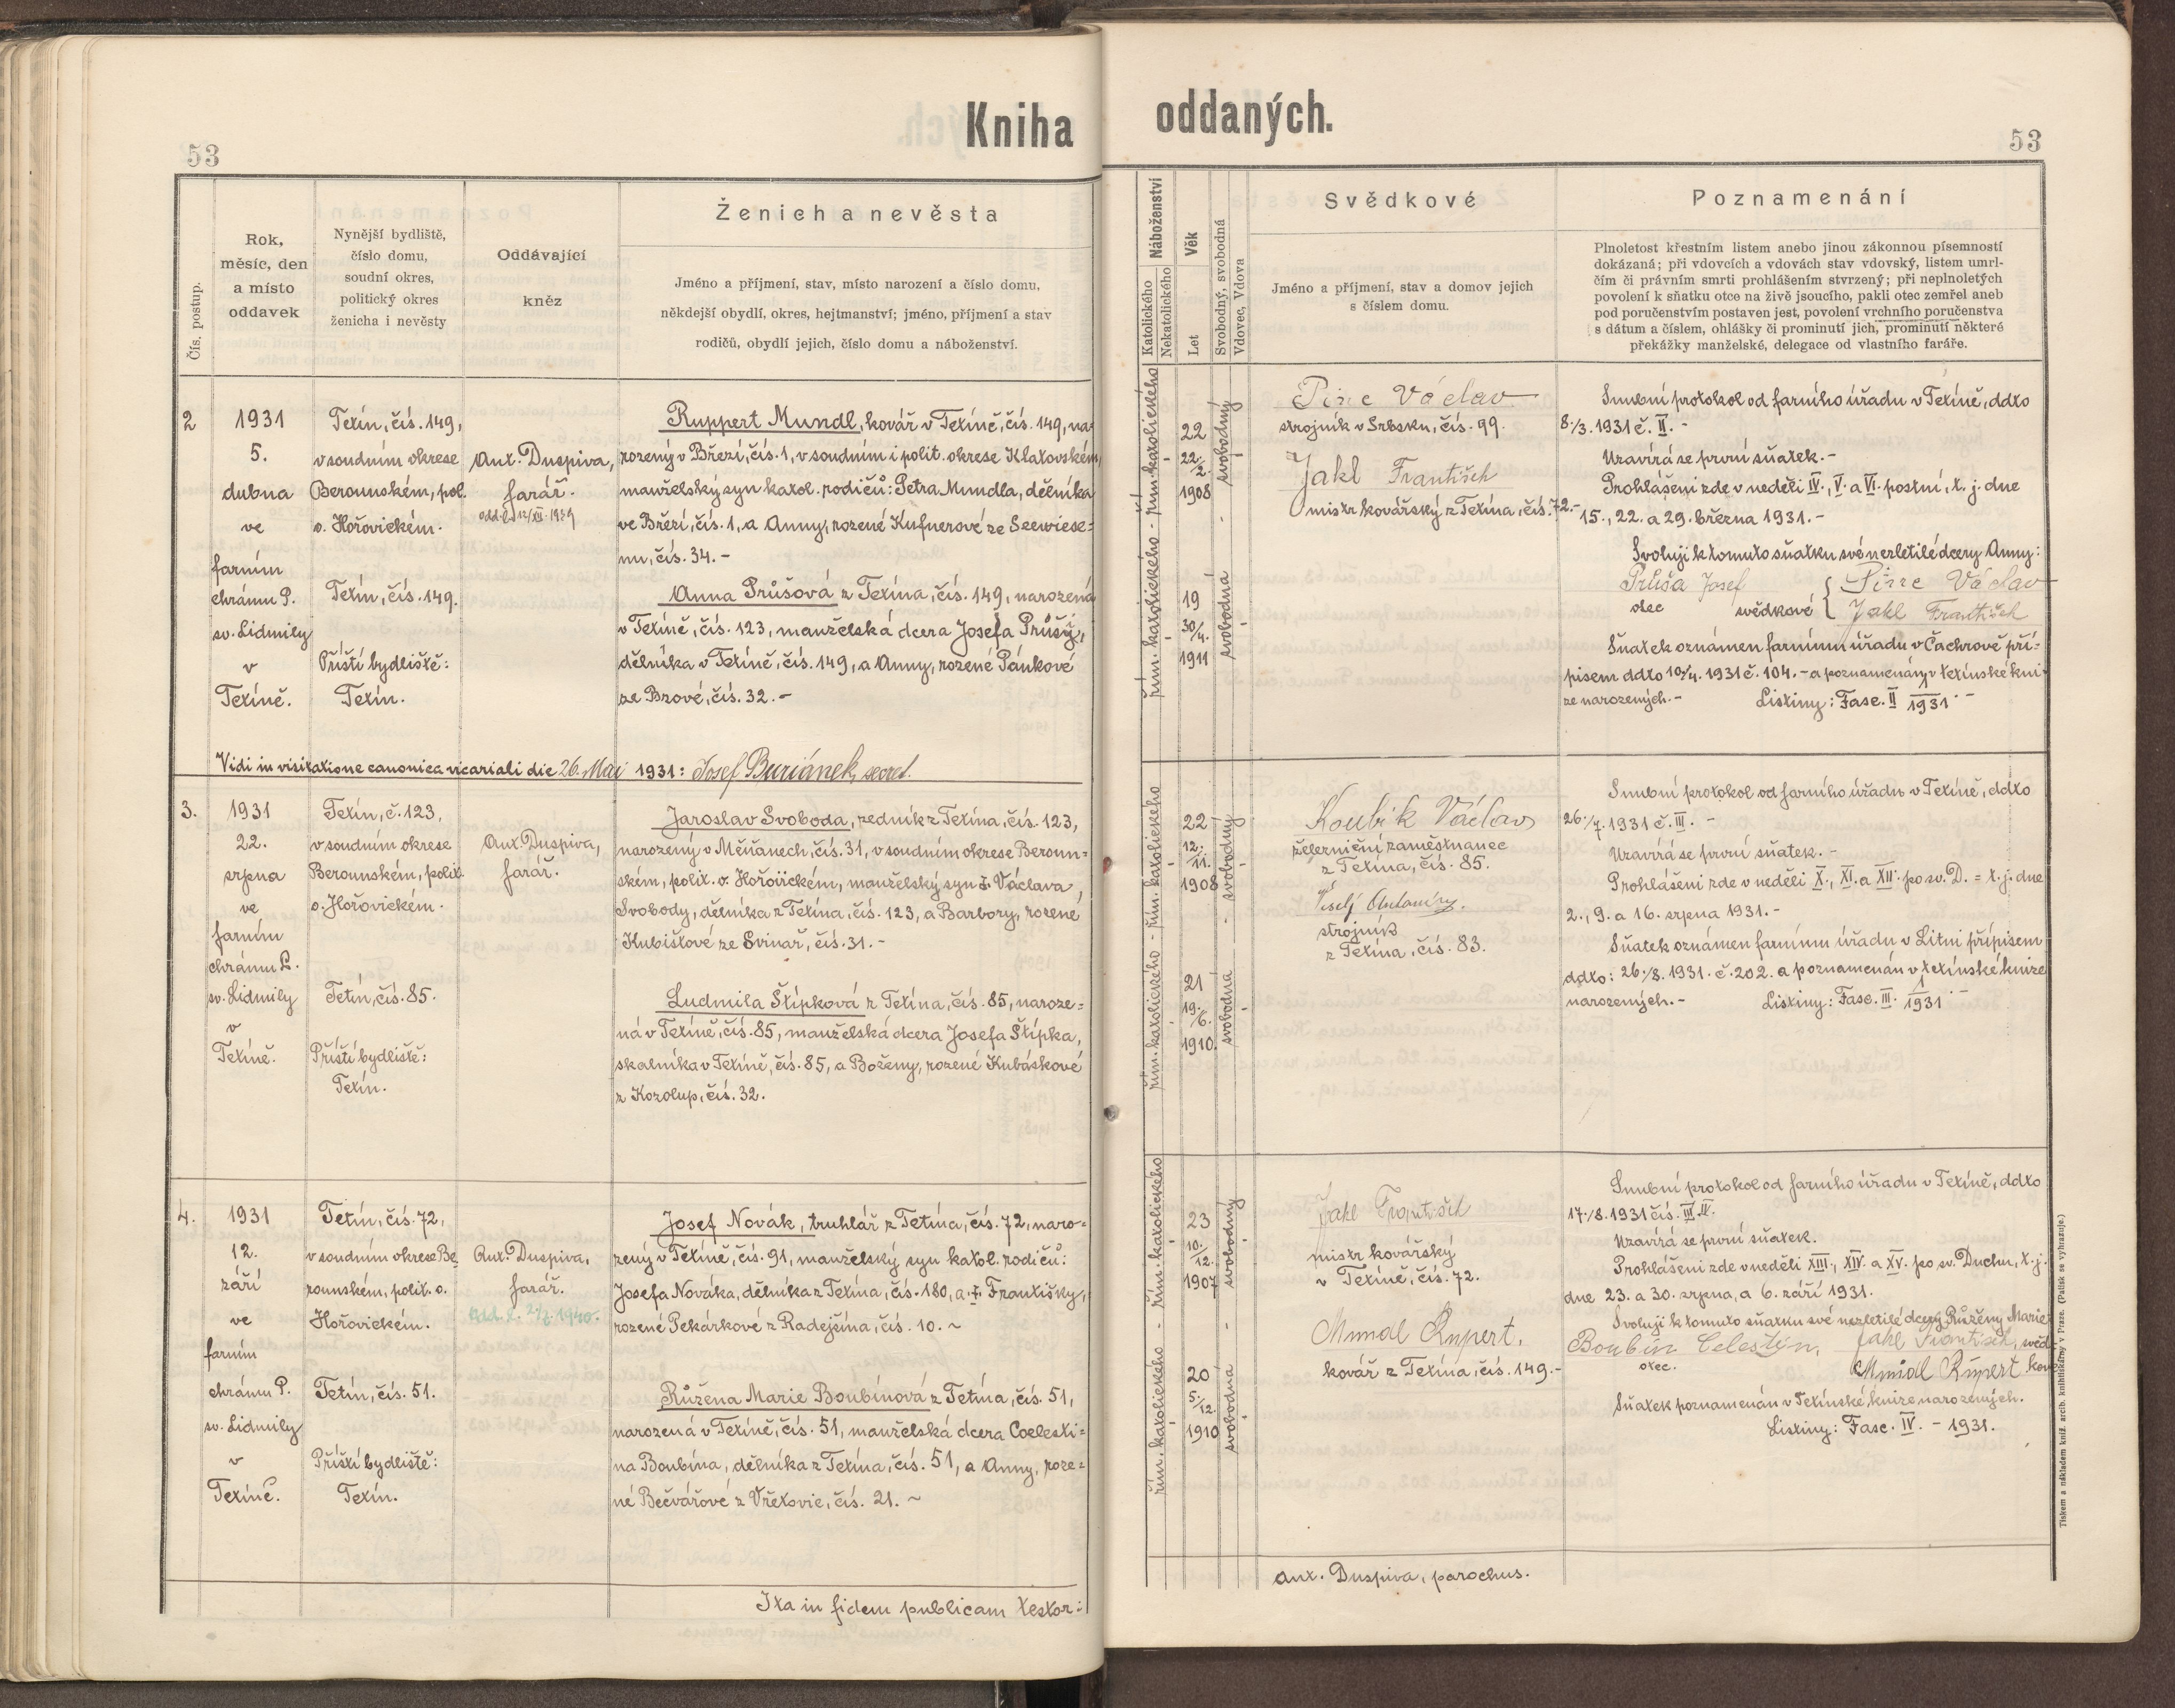 Kniha
53
Čís. postup.
Rok,
měsíc, den
a místo
oddavek
Nynější bydliště,
číslo domu,
soudní okres,
politický okres
ženicha i nevěsty
Oddávající
kněz
Ženich a nevěsta
Jméno a příjmení, stav, místo narození a číslo domu,
někdejší obydlí, okres, hejtmanství; jméno, příjmení a stav
rodičů, obydlí jejich, číslo domu a náboženství.
2
1931
5.
dubna
ve
farním
chrámu P.
sv. Lidmily
v
Tetíně.
Tetín, čís. 149,
v soudním okrese
Berounském, pol.
o. Hořovickém.
Tetín, čís. 149.
Příští bydliště:
Tetín.
Ant. Duspiva,
farář.
odd. l. d. 12/XII. 1939
Ruppert Mundl, kovář v Tetíně, čís. 149, na-
rozený v Březí, čís. 1, v soudním i polit. okrese Klatovském,
manželský syn katol. rodičů: Petra Mundla, dělníka
ve Březí, čís. 1, a Anny, rozené Kufnerové ze Seewiese-
nu, čís. 34. -
Anna Průšová z Tetína, čís. 149, narozená
v Tetíně, čís. 123, manželská dcera Josefa Průšy,
dělníka v Tetíně, čís. 149, a Anny, rozené Pánkové
ze Bzové, čís. 32. -
Vidi in visitatione canonica vicariali die 26. Mai 1931: Josef Buriánek, secret.
3.
1931
22.
srpna
ve
farním
chrámu P.
sv. Lidmily
v
Tetíně.
Tetín, č. 123,
v soudním okrese
Berounském, polit.
o. Hořovickém.
Tetín, čís. 85.
Příští bydliště:
Tetín.
Ant. Duspiva,
farář.
Jaroslav Svoboda, zedník z Tetína, čís. 123,
narozený v Měňanech, čís. 31, v soudním okrese Beroun=
ském, polit. o. Hořovickém, manželský syn † Václava
Svobody, dělníka z Tetína, čís. 123, a Barbory, rozené
Kubištové ze Svinař, čís. 31. -
Ludmila Štípková z Tetína, čís. 85, naroze=
ná v Tetíně, čís. 85, manželská dcera Josefa Štípka,
skalníka v Tetíně, čís. 85, a Boženy, rozené Kubáskové
z Kozolup, čís. 32.
4.
1931
12.
září
ve
farním
chrámu P.
sv. Lidmily
v
Tetíně.
Tetín, čís. 72,
v soudním okrese Be-
rounském, polit. o.
Hořovickém.
Tetín, čís. 51.
Příští bydliště:
Tetín.
Ant. Duspiva,
farář.
Josef Novák, truhlář z Tetína, čís. 72, naro=
zený v Tetíně, čís. 91, manželský syn katol. rodičů:
Josefa Nováka, dělníka z Tetína, čís. 180, a † Františky,
rozené Pekárkové z Radejčína, čís. 10. ~
Růžena Marie Boubínová z Tetína, čís. 51,
narozená v Tetíně, čís. 51, manželská dcera Coelesti=
na Boubína, dělníka z Tetína, čís. 51, a Anny, roze=
né Bečvářové z Vřetovic, čís. 21. ~
Ita in fidem publicam testor:
oddaných.
53
Náboženství
Katolického
Nekatolického
Věk
Let
Svobodný, svobodná
Vdovec, Vdova
Svědkové
Jméno a příjmení, stav a domov jejich
s číslem domu.
Poznamenání
Plnoletost křestním listem anebo jinou zákonnou písemností
dokázaná; při vdovcích a vdovách stav vdovský, listem umrl-
čím či právním smrti prohlášením stvrzený; při neplnoletých
povolení k sňatku otce na živě jsoucího, pakli otec zemřel aneb
pod poručenstvím postaven jest, povolení vrchního poručenstva
s dátum a číslem, ohlášky či prominutí jich, prominutí některé
překážky manželské, delegace od vlastního faráře.
řím. katolického - řím. katolického
22
22./2.
1908
19
30/4.
1911
svobodný
svobodná
Pinc Václav
strojník v Srbsku, čís. 99.
Jakl František
mistr kovářský z Tetína, čís. 72. -
Snubní protokol od farního úřadu v Tetíně, ddto
8./3. 1931 č. II. -
Uzavírá se první sňatek. -
Prohlášeni zde v neděli IV., V. a VI. postní, t. j. dne
15., 22. a 29. března 1931. -
Svoluji k tomuto sňatku své nezletilé dcery Anny:
Průša Josef
otec
svědkové
Pinc Václav
Jakl František
Sňatek oznámen farnímu úřadu v Čachrově pří=
pisem ddto 10/4. 1931 č. 104. - a poznamenán v tetínské kni-
ze narozených. - Listiny: Fasc. II 1931. -
řím. katolického - řím. katolického
22
12./11.
1908
21
19./6.
1910.
svobodný
svobodná
Koubík Václav
železniční zaměstnanec
z Tetína, čís. 85.
Veselý Antonín.
strojník
z Tetína, čís. 83.
Snubní protokol od farního úřadu v Tetíně, ddto
26./7. 1931 č. III. -
Uzavírá se první sňatek. -
Prohlášeni zde v neděli X., XI. a XII. po sv. D. = t. j. dne
2., 9. a 16. srpna 1931. -
Sňatek oznámen farnímu úřadu v Litni přípisem
ddto: 26./8. 1931. č. 202. a poznamenán v tetínské knize
narozených. - Listiny: Fasc. III. 1/1931. -
řím. katolického - řím. katolického
23
10./12.
1907
20
5./12.
1910
svobodný
svobodná
Jakl František
mistr kovářský
v Tetíně, čís. 72.
Mundl Rupert.
kovář z Tetína, čís. 149. -
Snubní protokol od farního úřadu v Tetíně, ddto
17./8. 1931 čís. IV.
Uzavírá se první sňatek.
Prohlášeni zde v neděli XIII., XIV. a XV. po sv. Duchu, t. j.
dne 23. a 30. srpna, a 6. září 1931.
Svoluji k tomuto sňatku své nezletilé dcery Růženy Marie
Boubín Celestýn, Jakl František, svěd-
otec. Mundl Rupert kové
Sňatek poznamenán v Tetínské knize narozených.
Listiny: Fasc. IV. - 1931.
Ant. Duspiva, parochus.
Tiskem a nákladem kníž. arcib. knihtiskárny v Praze. (Patisk se vyhrazuje.)